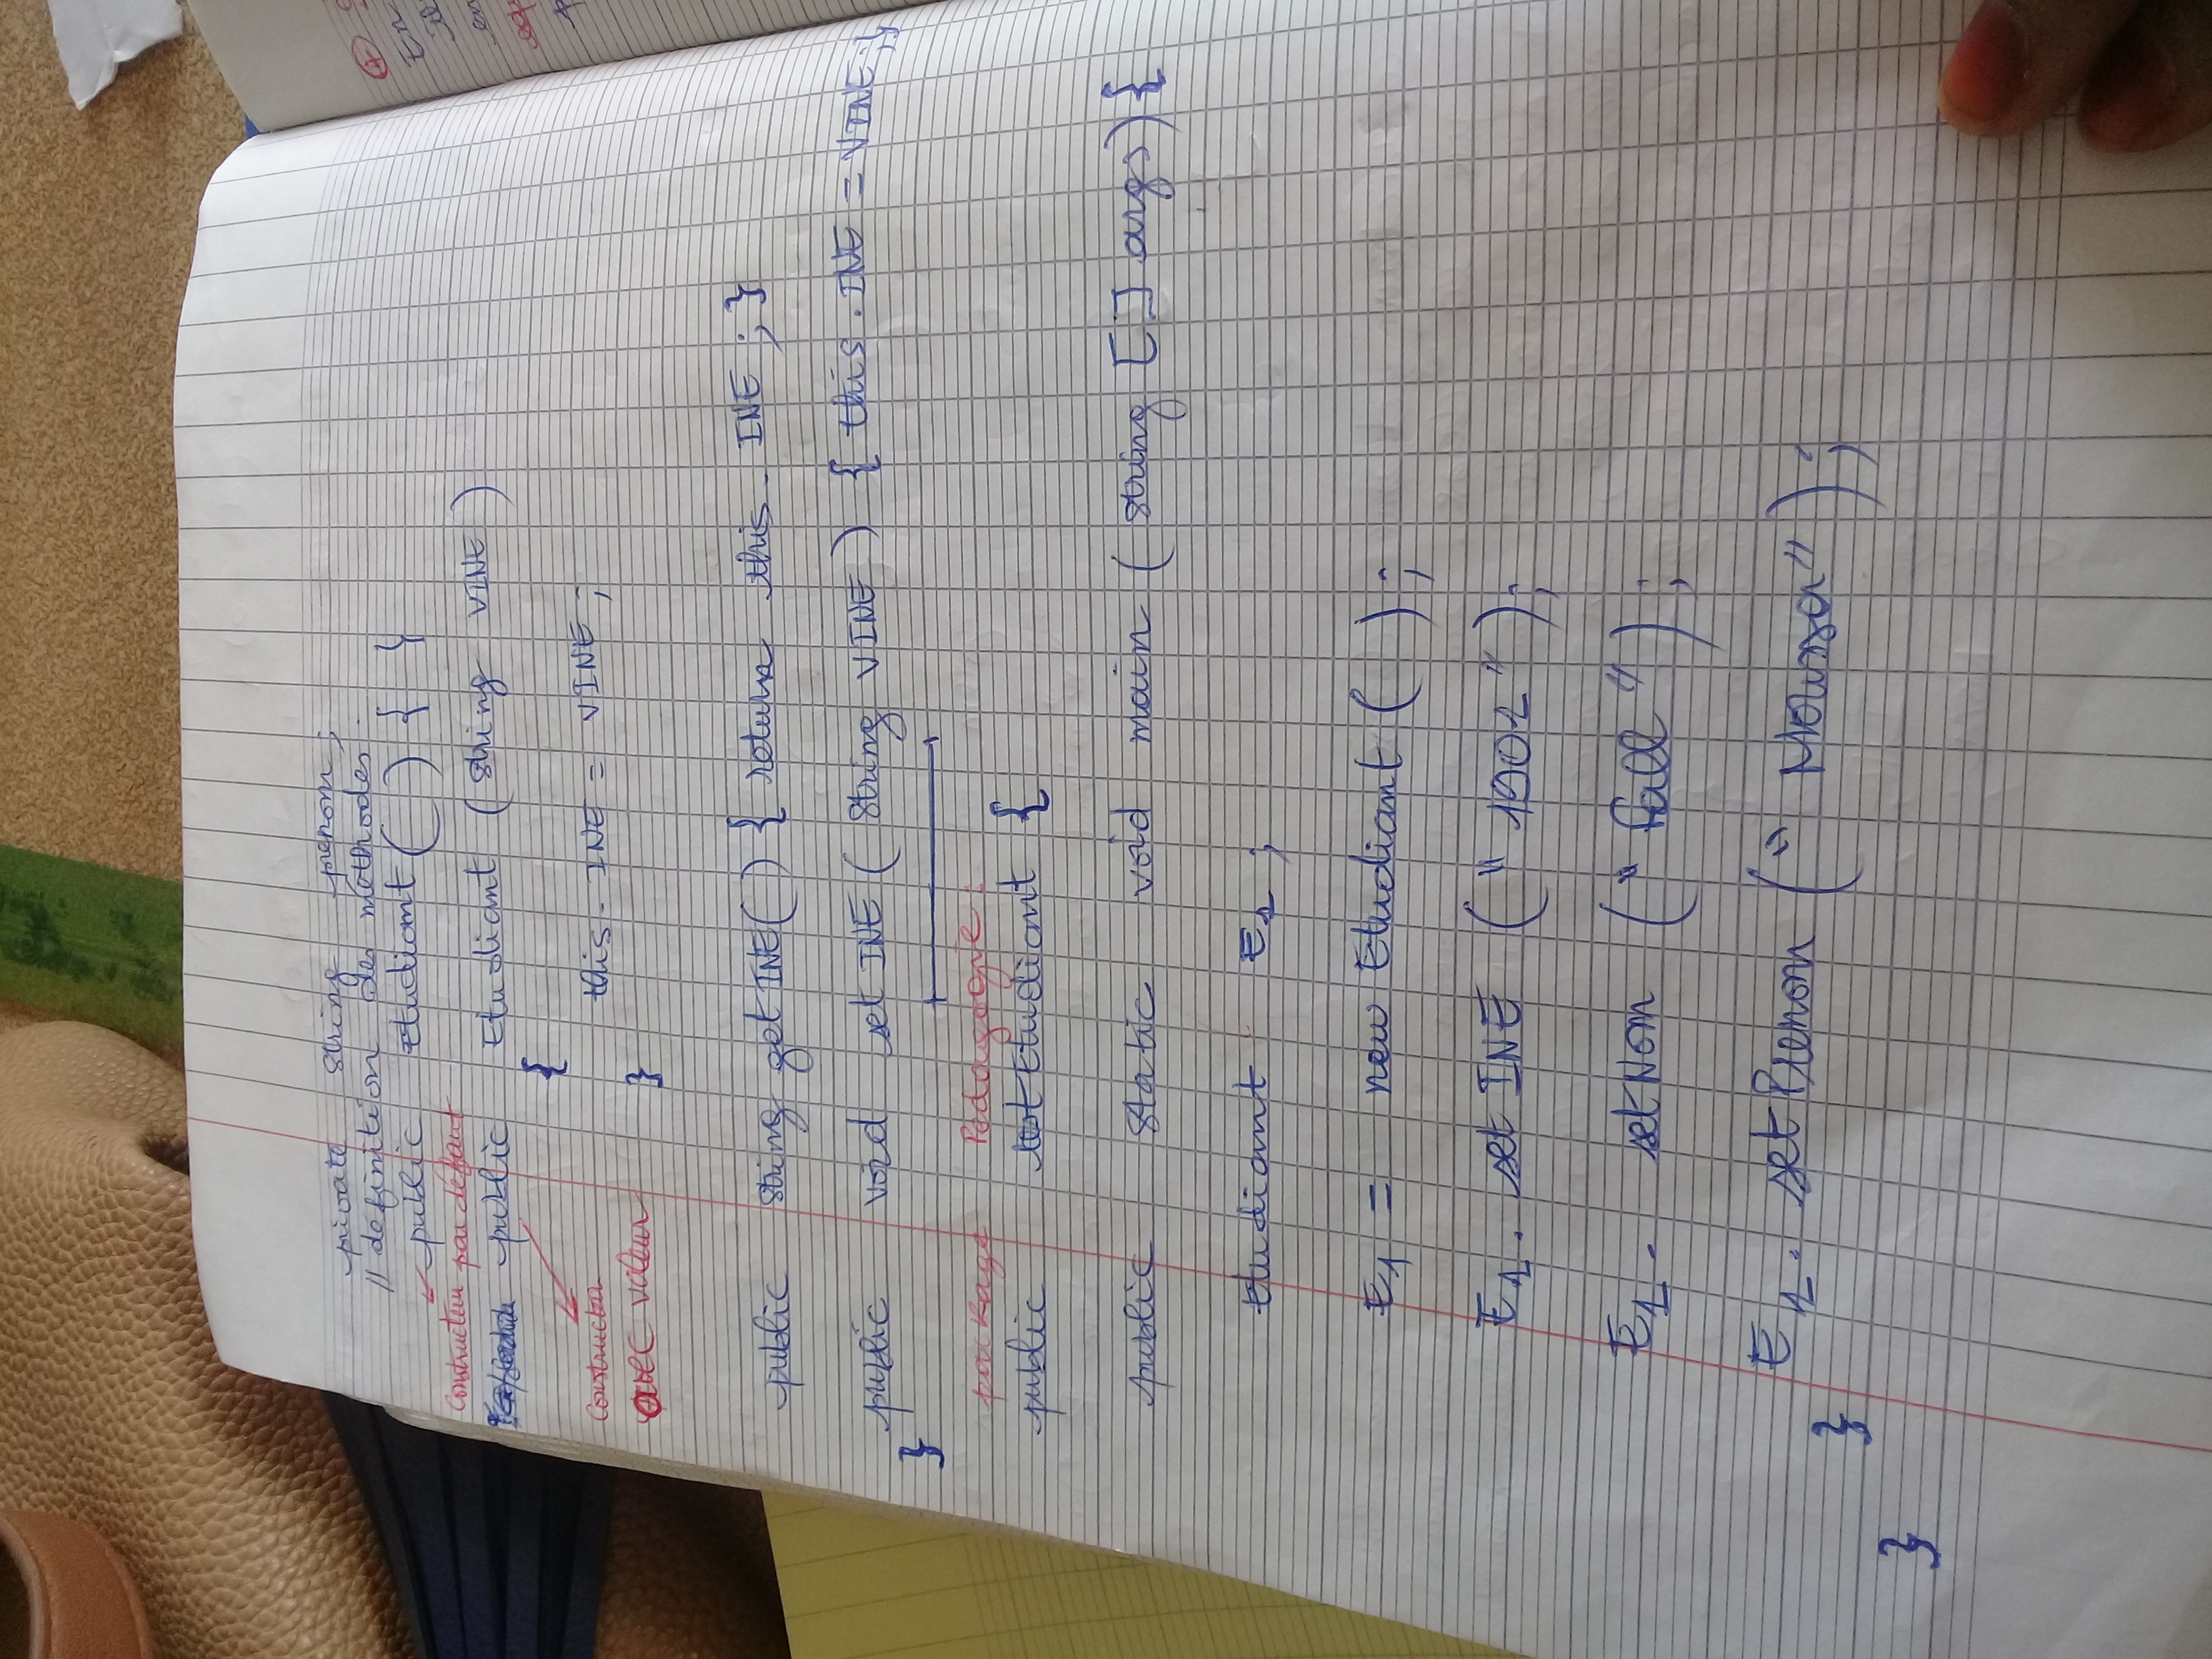 private string prenom;
// definition des methodes.
public Etudiant ( ) { }
Constructeur par defaut
public Etudiant (string VINE )
{
Constructeu this. INE = VINE ;
avec valeur }
public string get INE( ) { return this. INE ; }
public void set INE ( string VINE ) { this. INE = VINE ; }
}
package Pedagogie ;
public test Etudiant {
public static void main ( string [ ] args) {
Etudiant E1 ;
E1 = new Etudiant ( ) ;
E1. set INE ( " 1901 " ) ;
E1. setNom ( " Fall " ) ;
E1. setPrenom ( " Moussa " ) ;
}
}
En